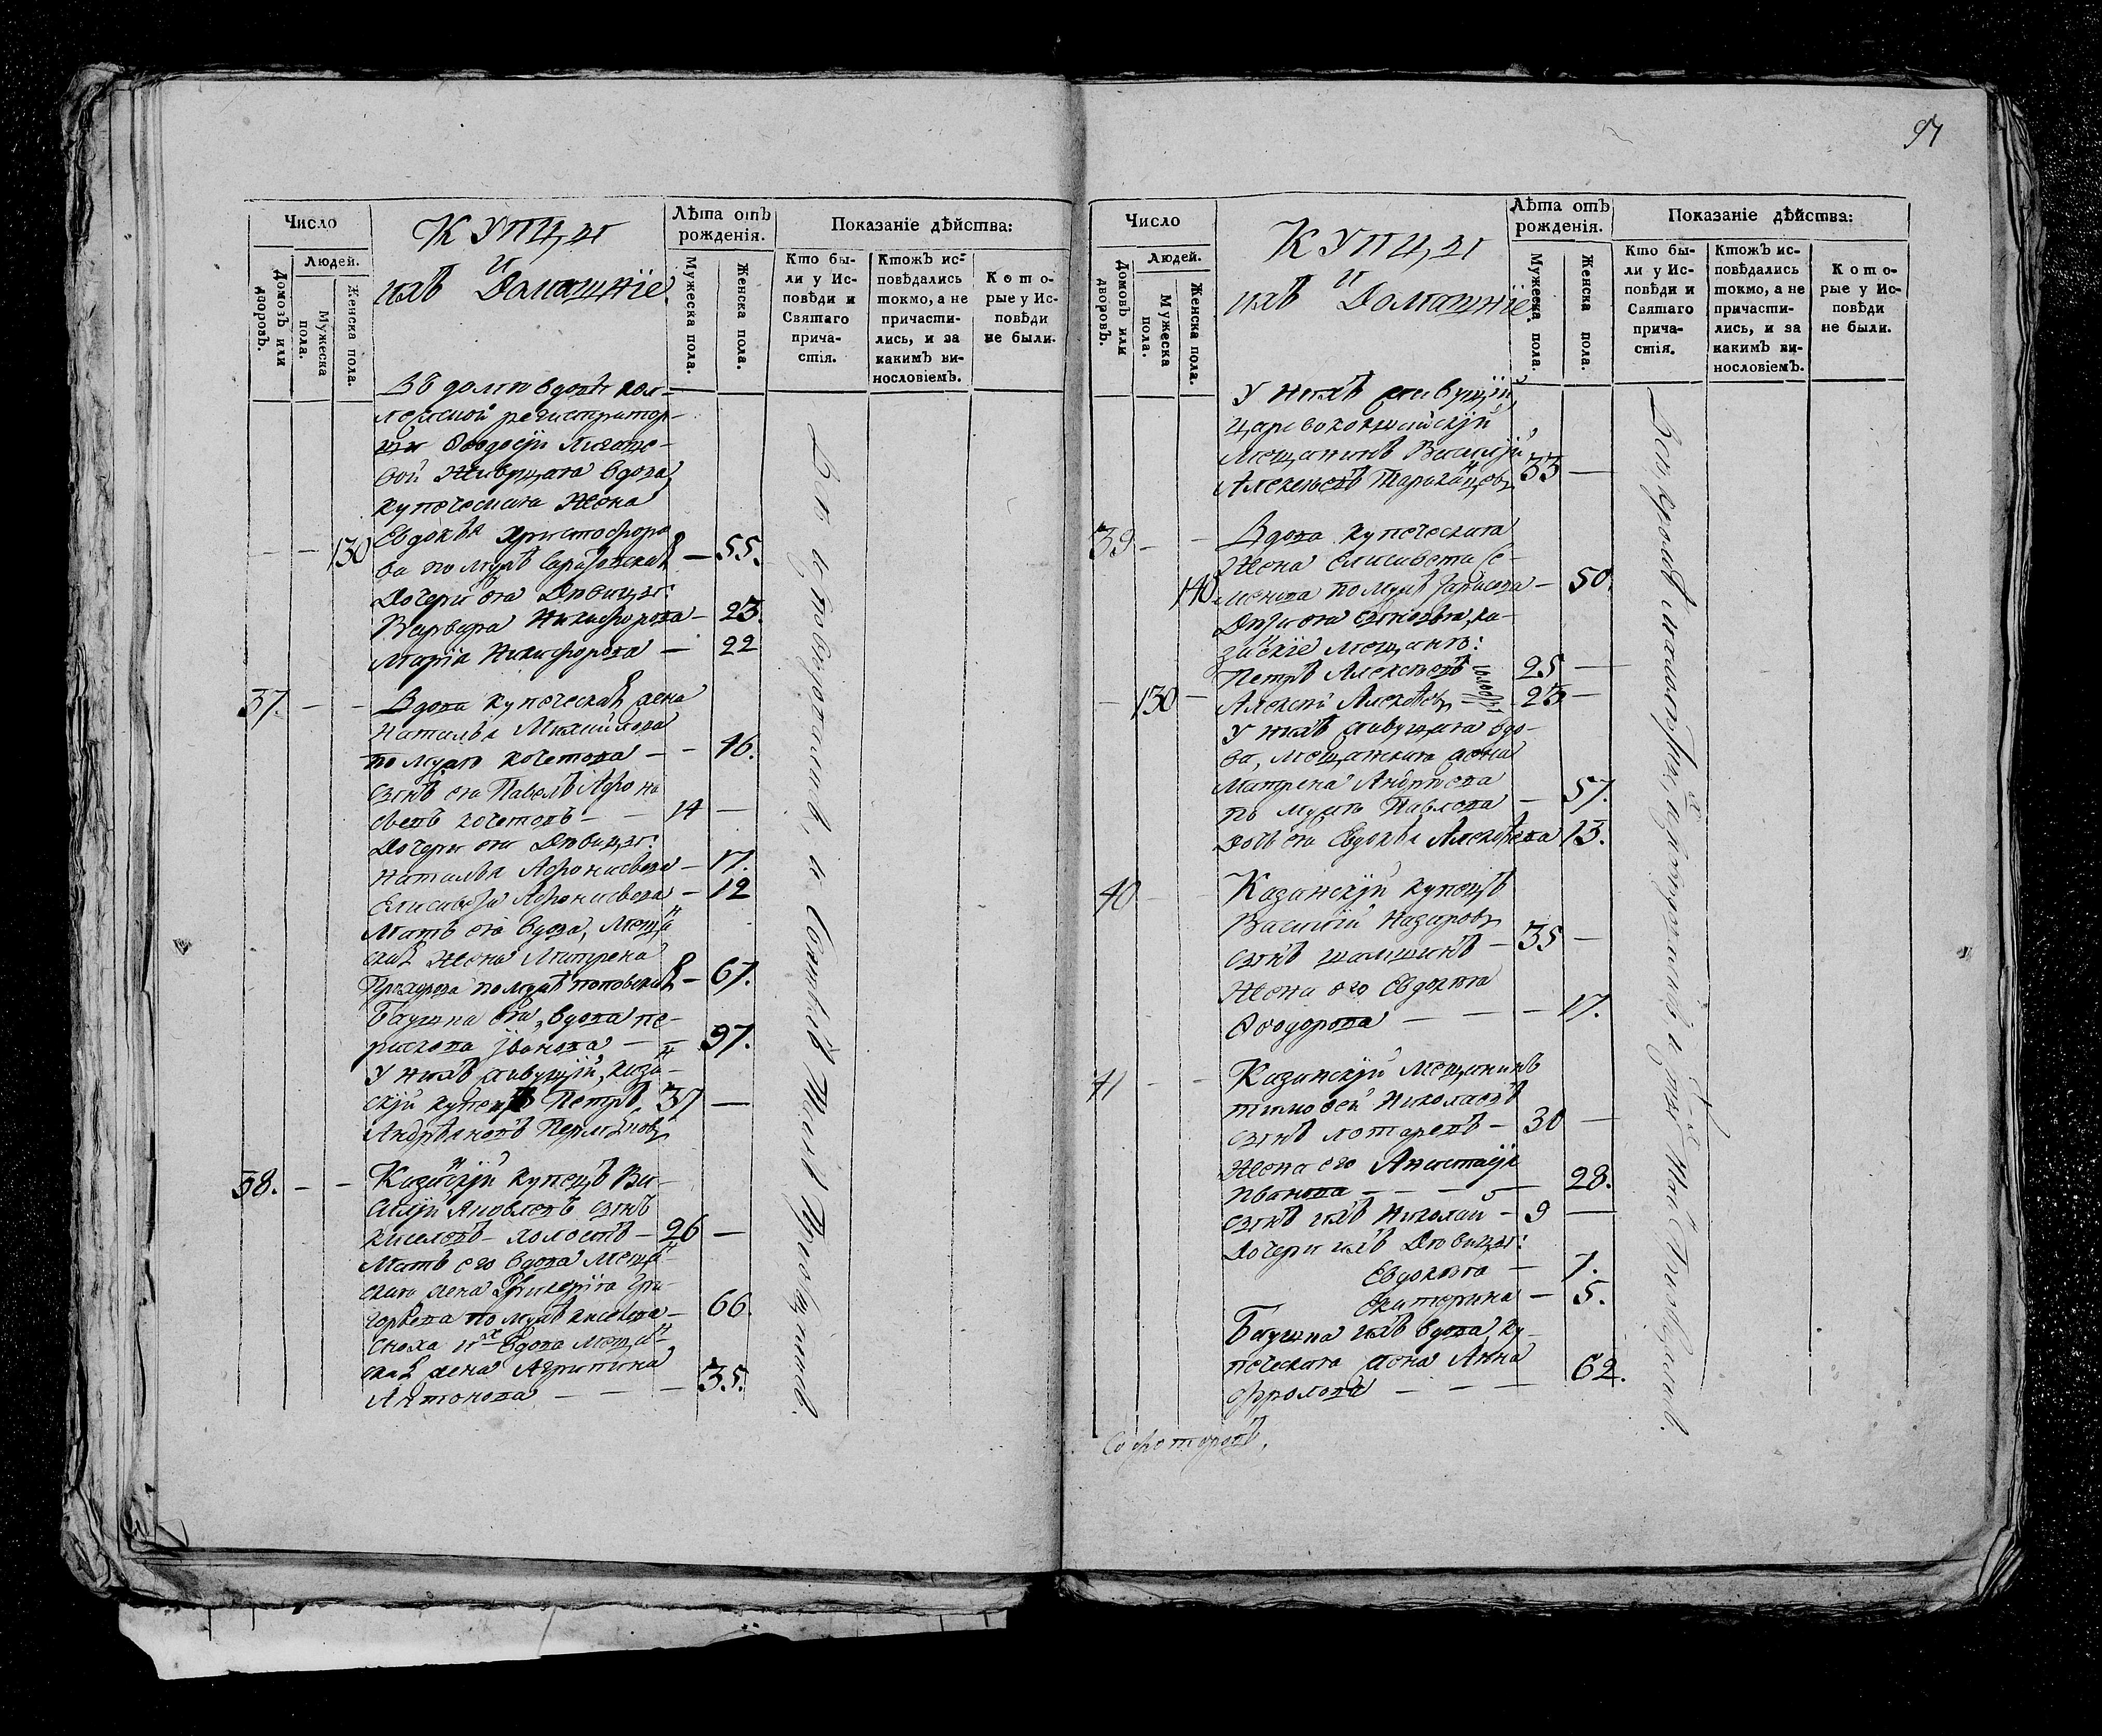 Число
Людей.
Домовъ или дворовъ.
Мужеска пола.
Женска пола.
КУПЦЫ
и
ихъ Домашніе.
Лѣта отъ
рожденія.
Мужеска пола.
Женска пола.
Показаніе дѣйства:
Кто бы-
ли у Ис-
повѣди и
Святаго
прича-
стія.
Ктожъ ис-
повѣдались
токмо, а не
причасти-
лись, и за
какимъ ви-
нословіемъ.
Кото-
рые у Ис-
повѣди
не были.
Въ домѣ вдовы кол-
лежской регистратор-
ши Ѳеодосіи
вой Живущая вдова,
купеческая Жена
130 Евдокѣя Христофоро
ва по мужѣ — 55.
Дочери ея Дѣвицы:
Варвара Никифорова — 23.
Марія Никифорова — 22
37. — — Вдова купеческая жена
Наталья Михайлова
по мужѣ Кочетова — — 46.
сынъ ея Павелъ Афона
сьевъ Кочетовъ — — 14 —
Дочери ея Дѣвицы:
Наталья Афонасьева — 17.
Елисавета Афонасьева — 12
Мать ея вдова, Мещан
ская Жена Матрена
Прохорова по мужѣ Поповская — 67.
Баушка ея, вдова
Иванова — — 97.
У нихъ живущій, казан-
скій купецъ Петръ 37 —
Андрѣяновъ
38. — — Казанскій купецъ Ва-
силій Яковлевъ сынъ
Киселевъ — холостъ — 26 —
Мать его вдова Мещан
ская жена Гликерія Гри-
горьева по мужѣ Киселева — 66.
Сноха ихъ вдова Мещан
ская жена Агрипина
Антонова — — — 35.
Всѣ исповѣдались и Святыхъ Таинъ Пріобщились.
97
Число
Людей.
Домовъ или дворовъ.
Мужеска пола.
Женска пола.
КУПЦЫ
и
ихъ Домашніе
Лѣта отъ
рожденія.
Мужеска пола.
Женска пола.
Показаніе дѣйства:
Кто бы-
ли у Ис-
повѣди и
Святаго
прича-
стія.
Ктожъ ис-
повѣдались
токмо, а не
причасти-
лись, и за
какимъ ви-
нословіемъ.
Кото-
рые у Ис-
повѣди
не были.
У нихъ живущій
царевококшайскій
Мещанинъ Василій
Алексѣевъ Таракановъ 33 —
39 — — Вдова купеческая
Жена Елисавета Се-
140 менова по мужѣ — 50.
Дѣти ея сыновья, ка-
занскіе мещане:
Петръ Алексѣевъ — 25 —
130 — Алексѣй Алексѣевъ — 23 —
У нихъ живущая вдо-
ва, мещанская жена
Матрена Андрѣева
по мужѣ Павлова — 57.
дочь ея Евдокѣя Алексѣева 13.
40 — — Казанскій купецъ
Василій Назаровъ
сынъ — 35 —
Жена его Евдокѣя
Ѳеодорова — — — 17.
41 — — Казанскій Мещанинъ
Тимоѳей Николаевъ
сынъ — 30 —
Жена его Анастасія
Иванова — — — — 28.
сынъ ихъ Николай — 9 —
Дочери ихъ Дѣвицы:
Евдокѣя — 7.
Екатерина — 5.
Баушка ихъ вдова, ку-
печеская жена Анна 62.
Фролова — — —